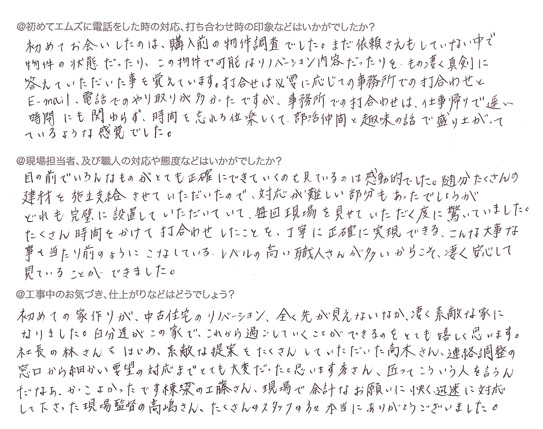 @初めてエムズに電話をした時の対応、打ち合わせ時の印象などはいかがでしたか?
初めてお会いしたのは、購入前の物件調査でした。まだ依頼さえもしていない中で
物件の状態だったり、この物件で可能なリノベーション内容だったりを、もの凄く真剣に
答えていただいた事を覚えています。打合せは必要に応じての事務所での打合わせと
E-mail、電話でのやり取りが多かったですが、事務所での打合わせは、仕事帰りで遅い
時間にも関わらず、時間を忘れる位楽しくて、部活仲間と趣味の話で盛り上がって
ているような感覚でした。
@現場担当者、及び職人の対応や態度などはいかがでしたか?
目の前でいろんなものがとても正確にできていくのを見ているのは感動的でした。随分たくさんの
建材を施主支給させていただいたので、対応が難しい部分もあったでしょうが
どれも完璧に設置していただいていて、毎回現場を見せていただく度に驚いていました。
たくさん時間をかけて打合わせしたことを、丁寧に正確に実現できる、こんな大事な
事を当たり前のようにこなしている、レベルの高い職人さんが多いからこそ、凄く安心して
見ていることができました。
@工事中のお気づき、仕上がりなどはどうでしょう?
初めての家作りが、中古住宅のリノベーション、全く先が見えないなか、凄く素敵な家に
なりました。自分達がこの家で、これから過ごしていくことができるのをとても嬉しく思います。
社長の林さんをはじめ、素敵な提案をたくさんしていただいた高木さん、連絡調整の
窓口から細かい要望の対応までとても大変だったと思います省さん、匠ってこういう人を言うん
だなぁ、かっこよかったです棟梁の工藤さん、現場で余計なお願いに快く迅速に対応
して下さった現場監督の高嶋さん、たくさんのスタッフの方々本当にありがとうございました。